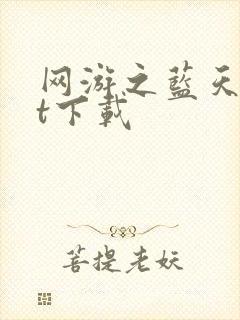 网游之蓝天
t下载
菩提老妖